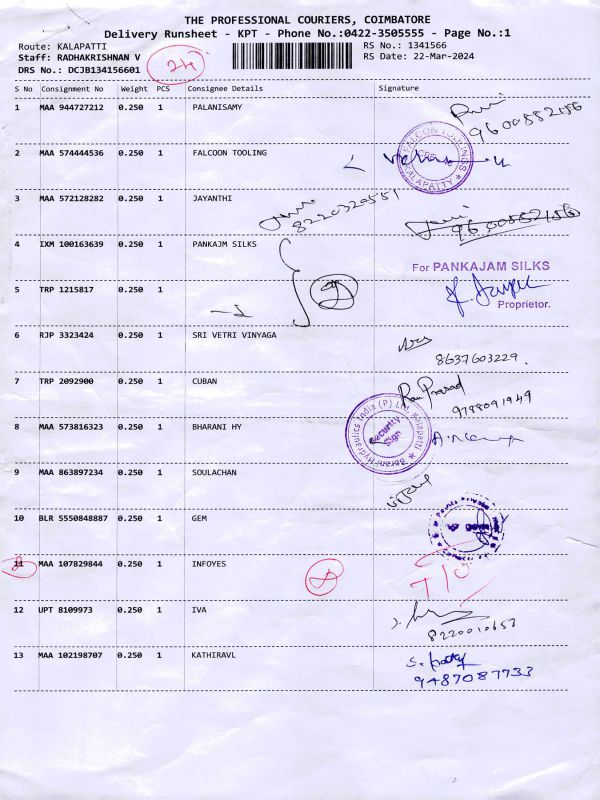 THE PROFESSIONAL COURIERS, COIMBATORE
Delivery Runsheet - KPT - Phone No.:0422-3505555 - Page No.:1
Route: KALAPATTI RS No.: 1341566
Staff: RADHAKRISHNAN V RS Date: 22-Mar-2024
DRS No.: DCJB134156601
24
S No Consignment No Weight PCS Consignee Details Signature
1 MAA 944727212 0.250 1 PALANISAMY
9600552156
2 MAA 574444536 0.250 1 FALCOON TOOLING
FALCON TOOLINGS
KALAPATTY
3 MAA 572128282 0.250 1 JAYANTHI
8220320551
9600552156
4 IXM 100163639 0.250 1 PANKAJM SILKS
For PANKAJAM SILKS
Proprietor.
5 TRP 1215817 0.250 1
6 RJP 3323424 0.250 1 SRI VETRI VINYAGA
8637603229.
7 TRP 2092900 0.250 1 CUBAN
Ram Prasad
9788091949
8 MAA 573816323 0.250 1 BHARANI HY
Barani Hydraulics India (P) Ltd, Kalapatti
Security
Sign
9 MAA 863897234 0.250 1 SOULACHAN
10 BLR 5550848887 0.250 1 GEM
11 MAA 107829844 0.250 1 INFOYES
12 UPT 8109973 0.250 1 IVA
8220010653
13 MAA 102198707 0.250 1 KATHIRAVL
9487087733